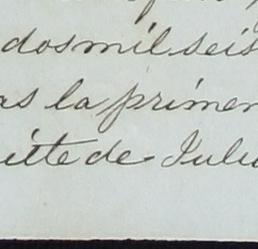 dos mil seis
as la primer
de Juli